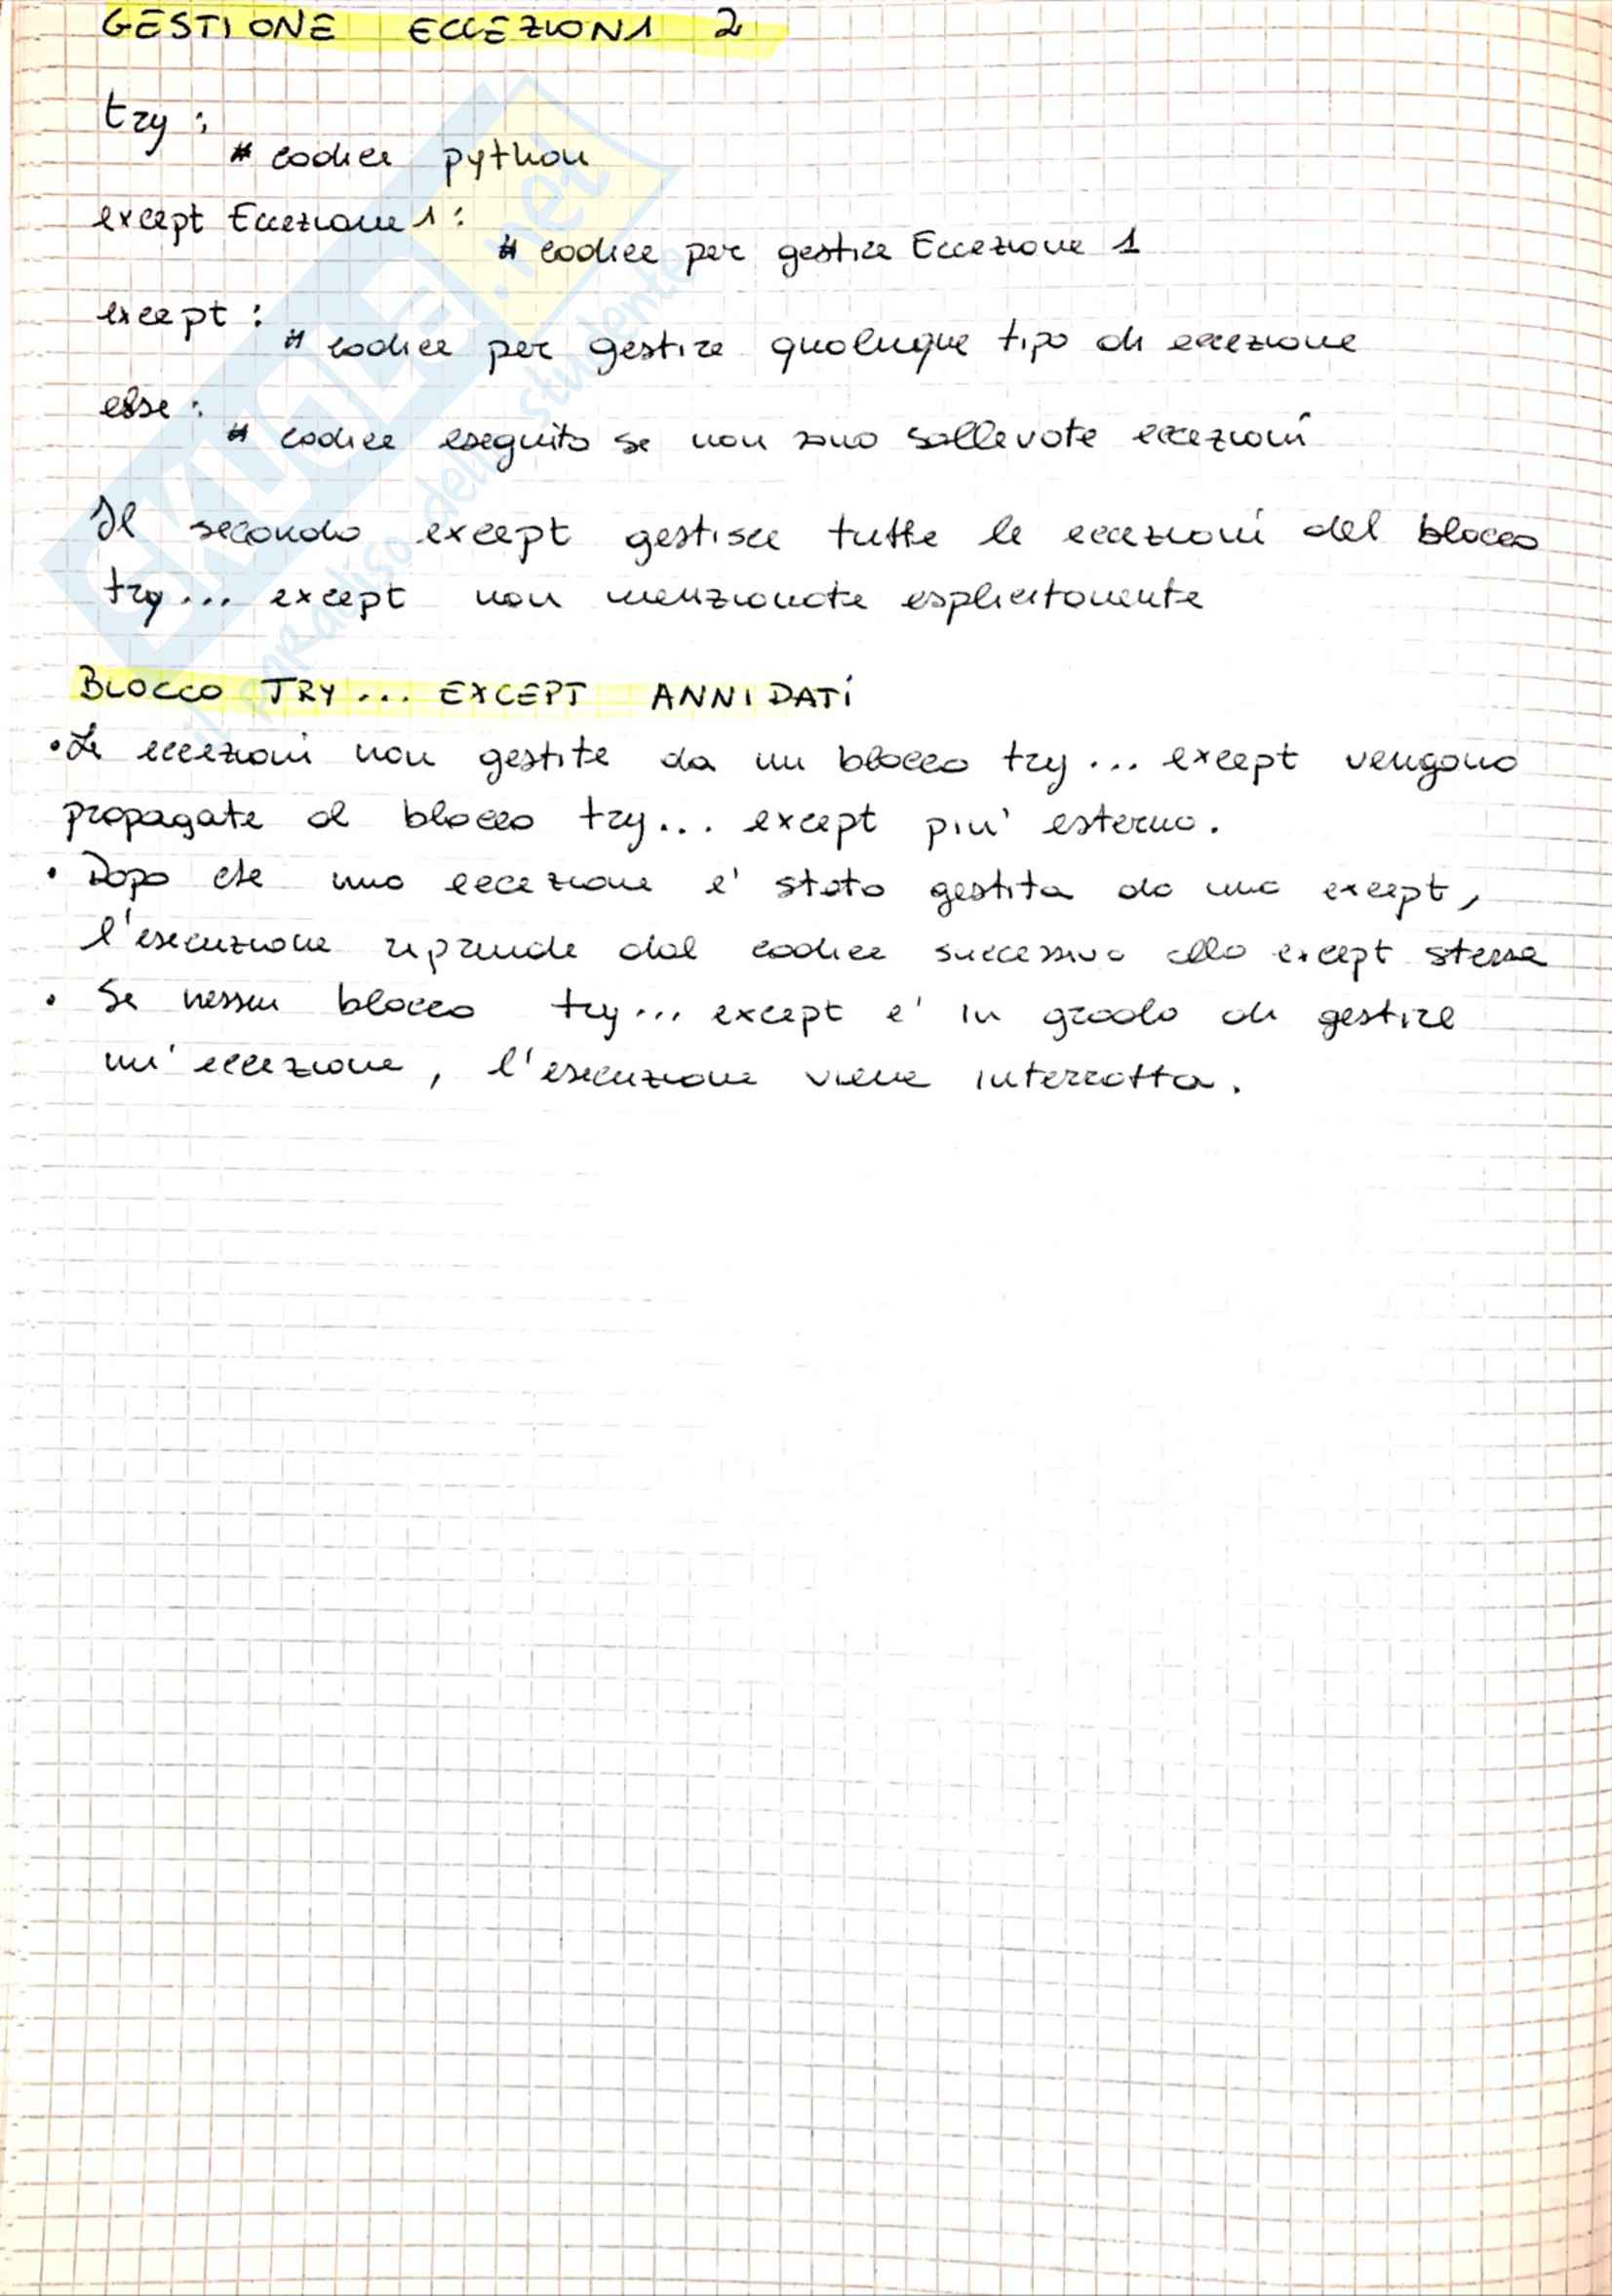 GESTIONE ECCEZIONI 2
try :
# codice python
except Eccezione 1 :
# codice per gestire Eccezione 1
except :
# codice per gestire qualunque tipo di eccezione
else :
# codice eseguito se non sono sollevate eccezioni
Il secondo except gestisce tutte le eccezioni del blocco
try... except non menzionate esplicitamente
BLOCCO TRY... EXCEPT ANNIDATI
• Le eccezioni non gestite da un blocco try... except vengono
propagate al blocco try... except piu' esterno.
• Dopo che una eccezione e' stata gestita da una except,
l'esecuzione riprende dal codice successivo alla except stessa
• Se nessun blocco try... except e' in grado di gestire
un'eccezione, l'esecuzione viene interrotta.
SKUOLA.net
il paradiso dello studente